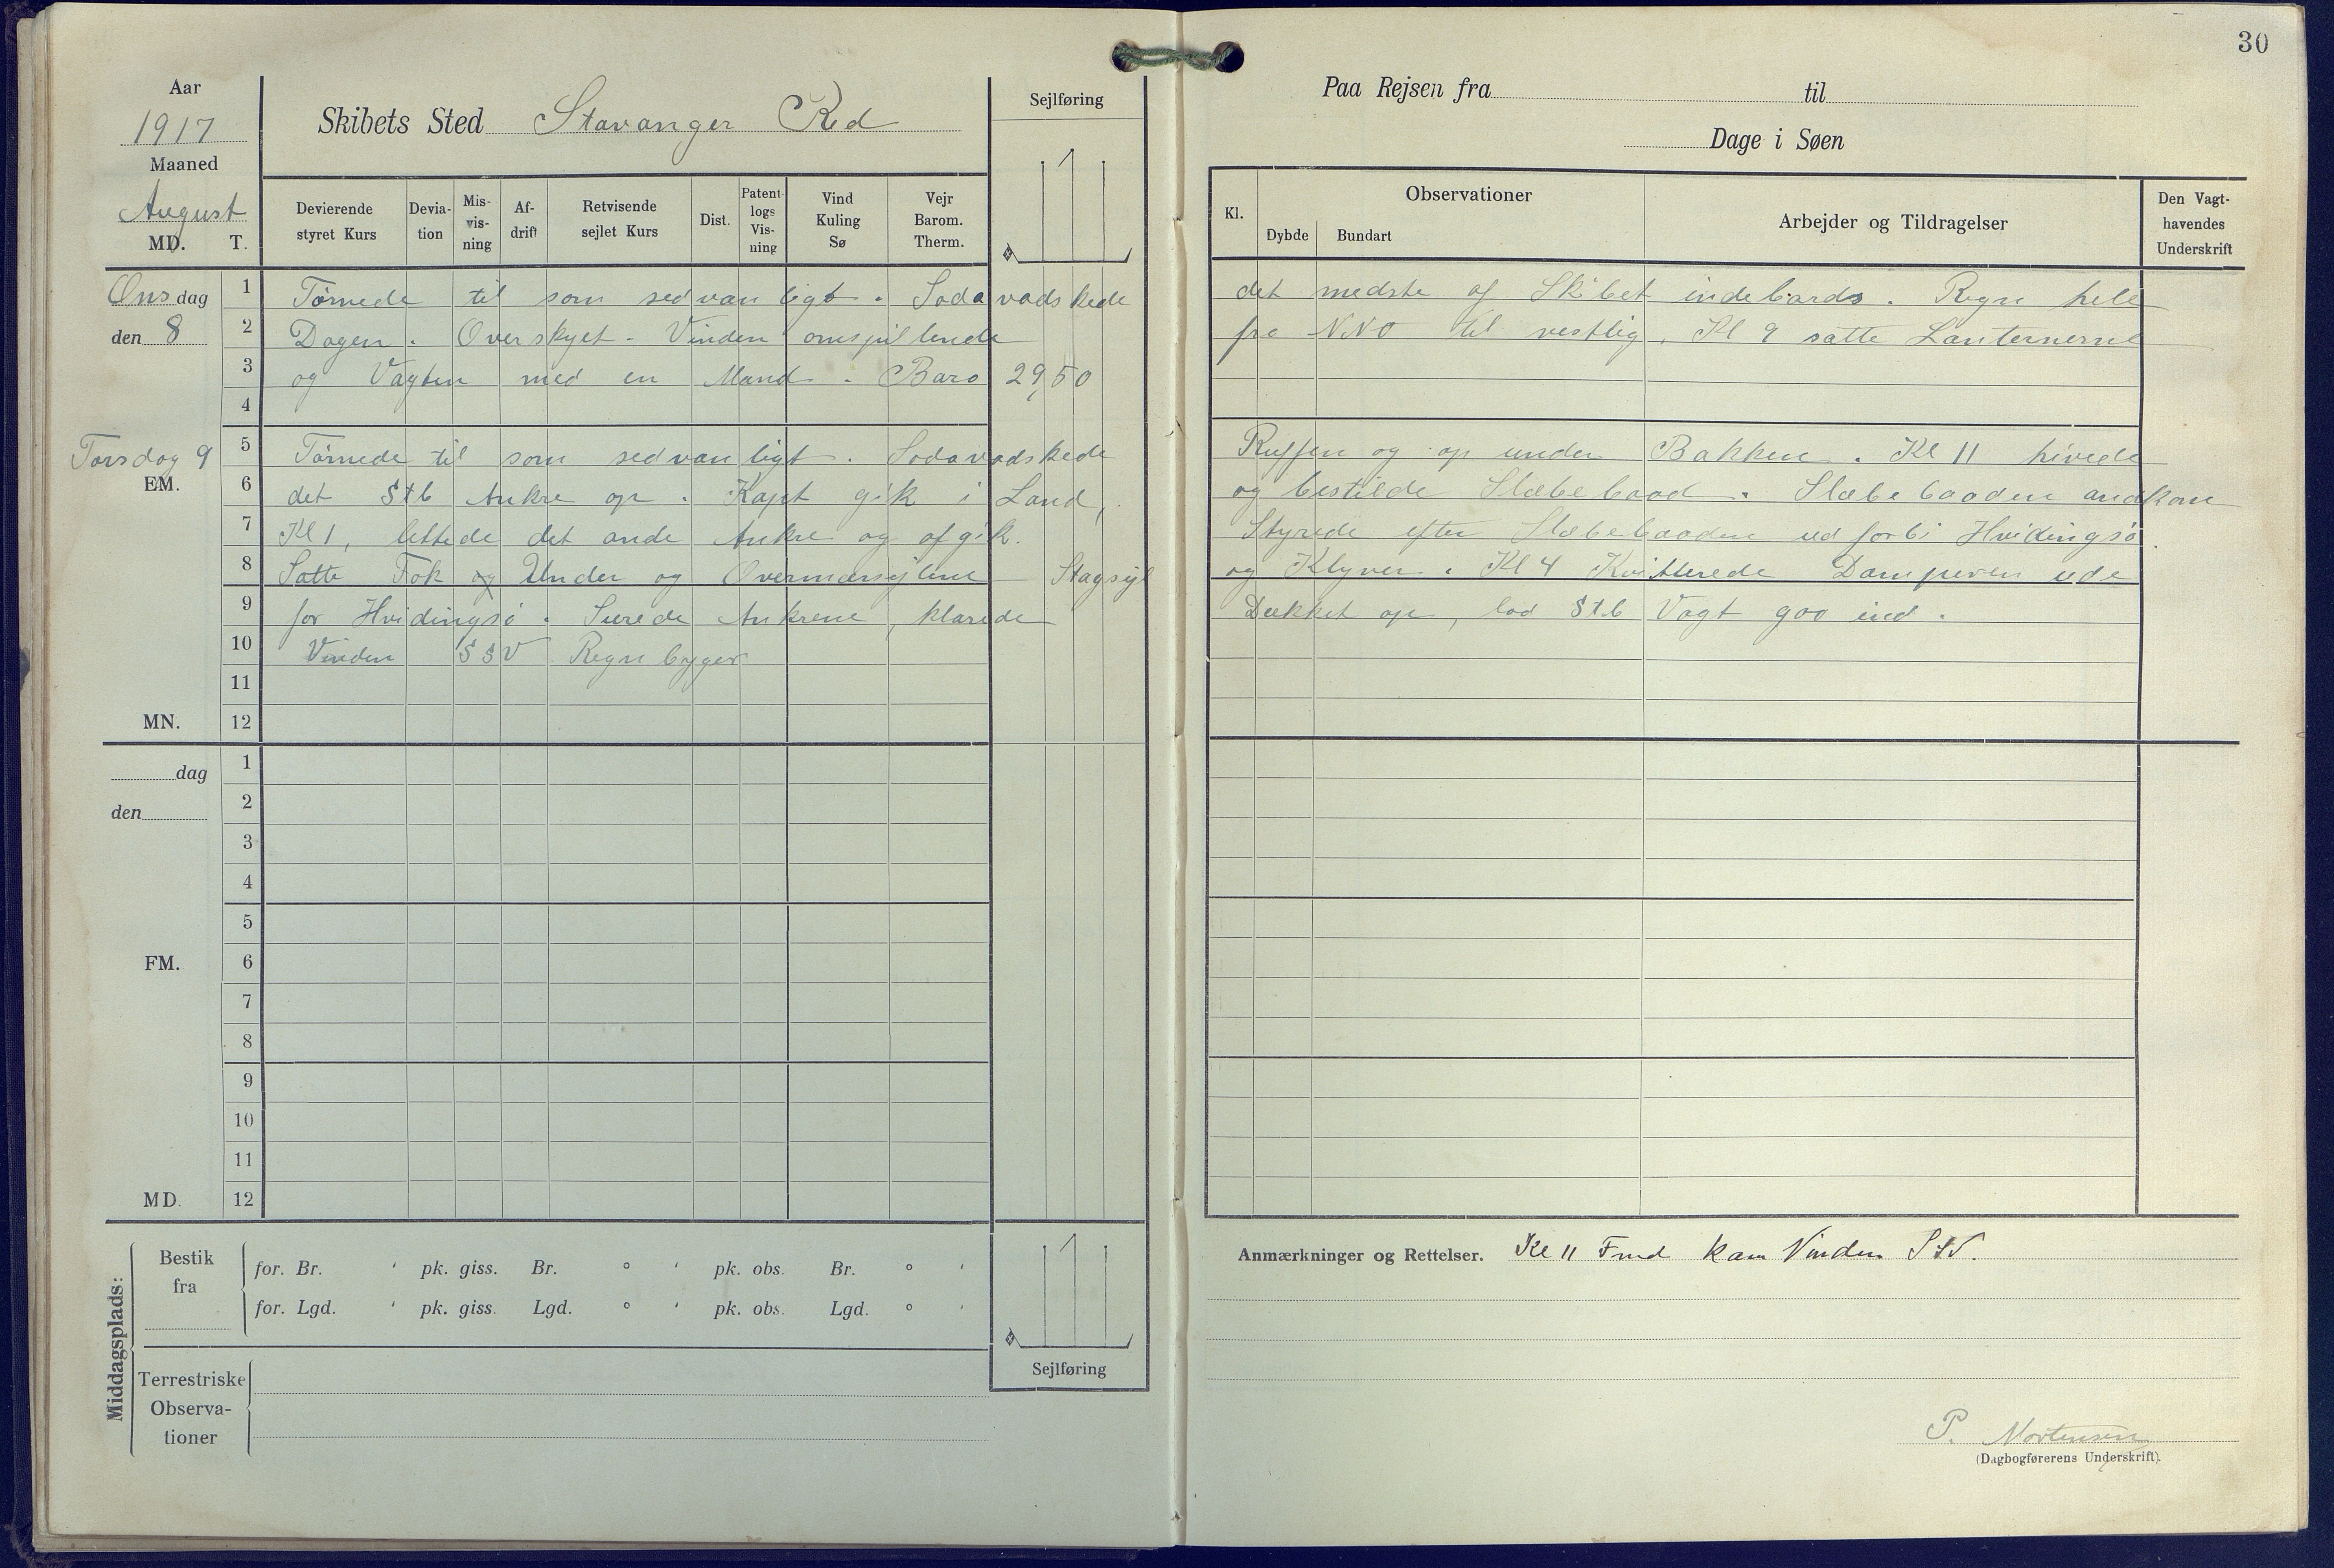 30
Aar
1917
Maaned
August
MD. T.
Skibets Sted Stavanger Red
Sejlføring
Devierende styret Kurs
Devia- tion
Mis- vis- ning
Af- drift
Retvisende sejlet Kurs
Dist.
Patent- logs Vis- ning
Vind Kuling Sø
Vejr Barom. Therm.
Paa Rejsen fra til
Dage i Søen
Kl.
Observationer
Dybde Bundart
Arbejder og Tildragelser
Den Vagt- havendes Underskrift
Onsdag 1 Tørnede til som sedvanligt. Sodavadskede det medste af Skibet indebords. Regn hele
den 8 2 Dagen. Overskyet. Vinden omspillende fra NNO til vestlig. Kl 9 satte Lanternerne
3 og Vagten med en Mand. Baro 29,50
4
Torsdag 9 5 Tørnede til som sedvanligt. Sodavadskede Ruffen og op under Bakken. Kl 11 hivede
EM. 6 det Stb Ankre op. Kapt gik i Land, og bestilde Slæbebaad. Slæbebaaden andkom
7 Kl 1, lettede det ande Ankre og afgik. Styrede efter Slæbebaaden ud forbi Hvidingsø.
8 Satte Fok og Under og Overmærsejlene Stagsejl og Klyver. Kl 4 Kvitterede Damperen ude
9 for Hvidingsø. Surede Ankrene, klarede Dækket op, lod Stb Vagt gaa ind.
10 Vinden SSV Regn byger
11
MN. 12
dag 1
den 2
3
4
5
FM. 6
7
8
9
10
11
MD. 12
Middagsplads:
Bestik fra
for. Br. ' pk. giss. Br. ° ' pk. obs. Br. ° '
for. Lgd. ' pk. giss. Lgd. ° ' pk. obs. Lgd. ° '
Sejlføring
Terrestriske Observa- tioner
Anmærkninger og Rettelser. Kl 11 Fmd kom Vinden
P. Mortensen
(Dagbogførerens Underskrift).